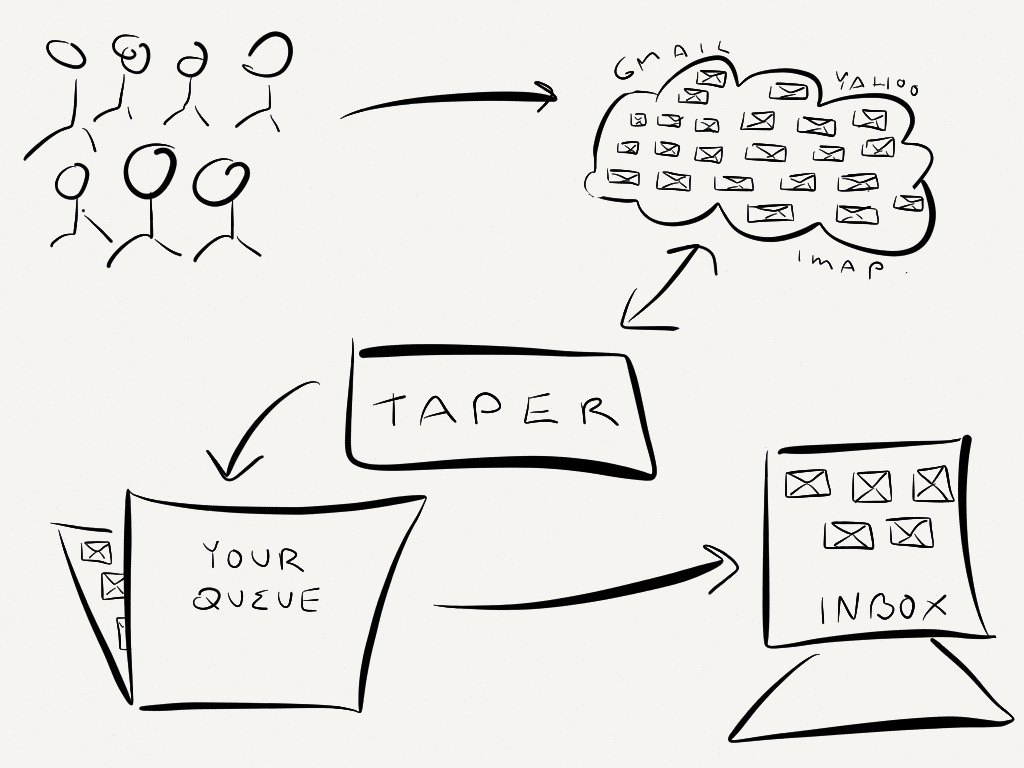 GMAIL
YAHOO
IMAP
TAPER
YOUR
QUEUE
INBOX